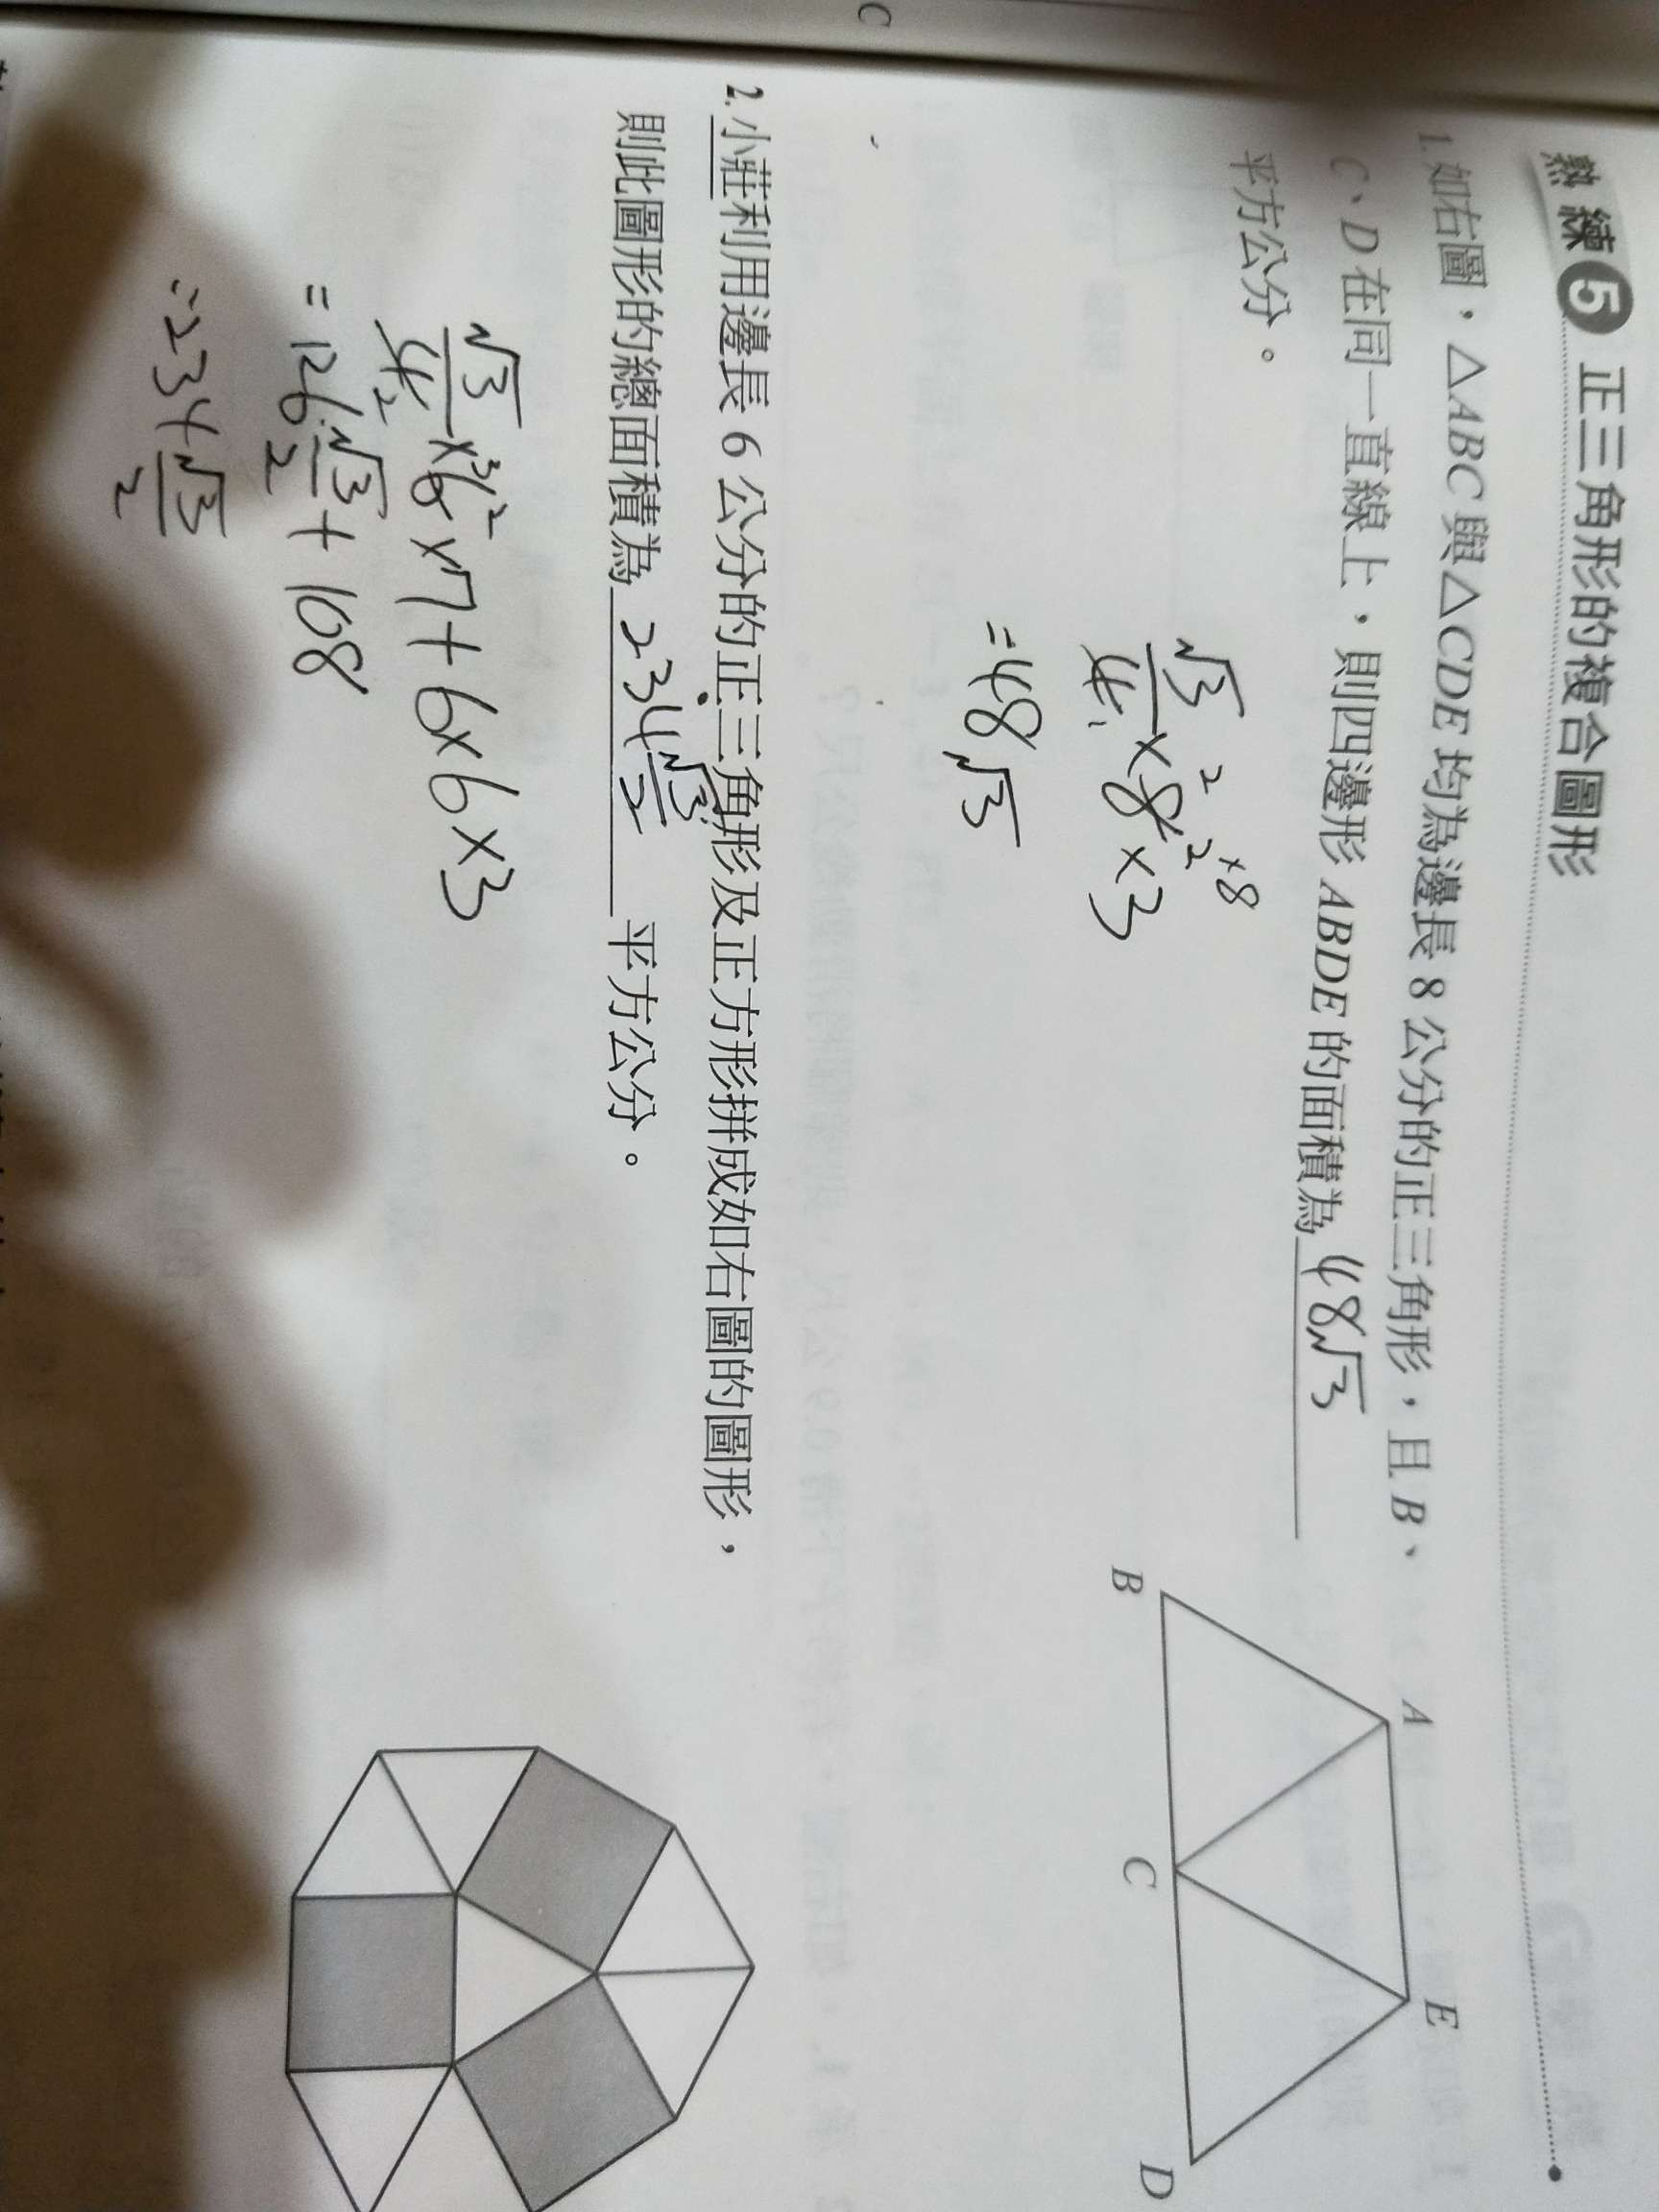 熱練 5 正三角形的複合圖形
1. 如右圖，△ABC 與△CDE 均為邊長 8 公分的正三角形，且 B、
C、D 在同一直線上，則四邊形 ABDE 的面積為 48√3
平方公分。
A
E
B
C
D
√3/4 × 8² × 3
2 × 8
= 48√3
2. 小莊利用邊長 6 公分的正三角形及正方形拼成如右圖的圖形，
則此圖形的總面積為 234√3/2 平方公分。
√3/4 × 6² × 7 + 6 × 6 × 3
2 3
= 126√3/2 + 108
= 234√3/2
C